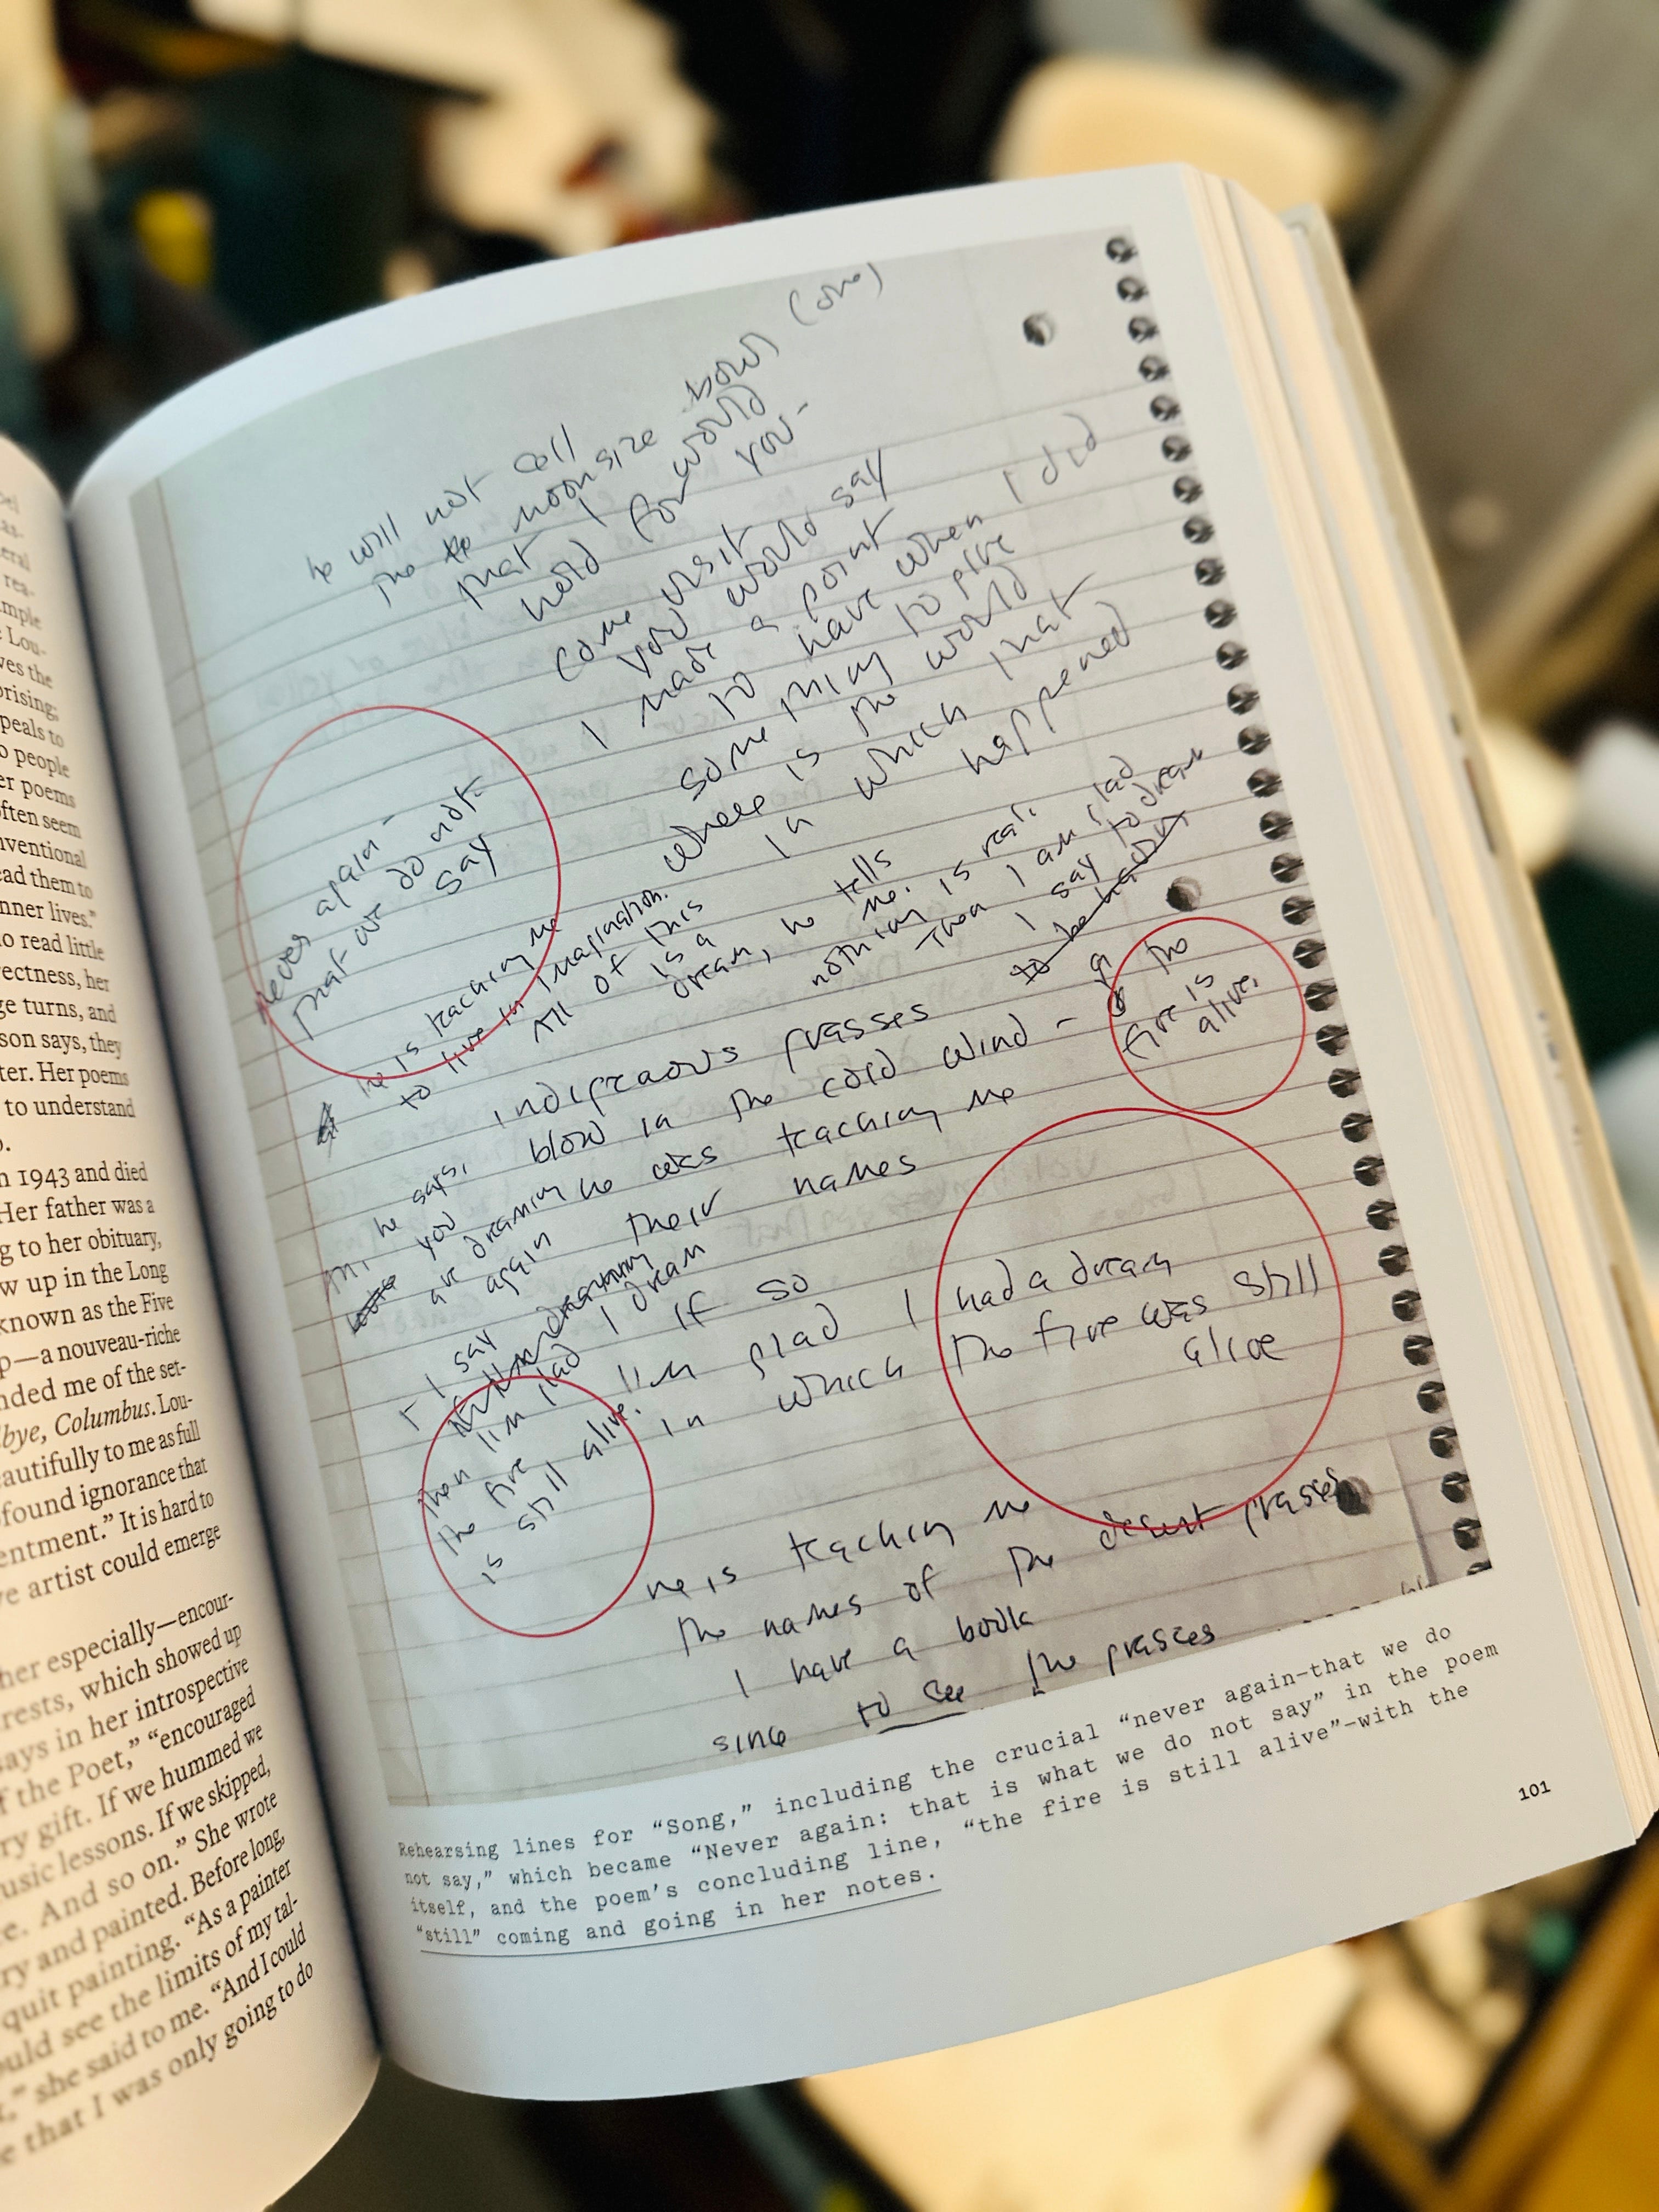 el
as-
eral
rea-
mple
Lou-
ves the
prising;
peals to
o people
er poems
ften seem
nventional
ead them to
nner lives."
o read little
rectness, her
ge turns, and
son says, they
ter. Her poems
to understand
o.
n 1943 and died
Her father was a
g to her obituary,
w up in the Long
known as the Five
p—a nouveau-riche
nded me of the set-
bye, Columbus. Lou-
eautifully to me as full
ofound ignorance that
entment." It is hard to
e artist could emerge
her especially—encour-
rests, which showed up
says in her introspective
f the Poet," "encouraged
ry gift. If we hummed we
usic lessons. If we skipped,
e. And so on." She wrote
ry and painted. Before long,
quit painting. "As a painter
ould see the limits of my tal-
," she said to me. "And I could
e that I was only going to do
he will not sell
the moonsize bowl (one)
that I would
hold for you-
come visit
you would say
I made a point
to have when I did
something to give
where is the world
in which that
happened
never again-
that we do not
say
he is teaching me
to live in imagination.
All of this
is a
dream, he tells
me. nothing is real.
Then I am glad
I say to dream
to be
indigenous grasses
blow in the cold wind -
he was teaching me
their names
the
fire is
alive.
he says,
you
are dreaming
again
I say
then I'm glad I dream
the fire
is still alive.
If so
I'm glad I had a dream
in which the fire was still
alive
he is teaching me
the names of the desert grasses
I have a book
sing to see the grasses
Rehearsing lines for "Song," including the crucial "never again—that we do
not say," which became "Never again: that is what we do not say" in the poem
itself, and the poem's concluding line, "the fire is still alive"—with the
"still" coming and going in her notes.
101